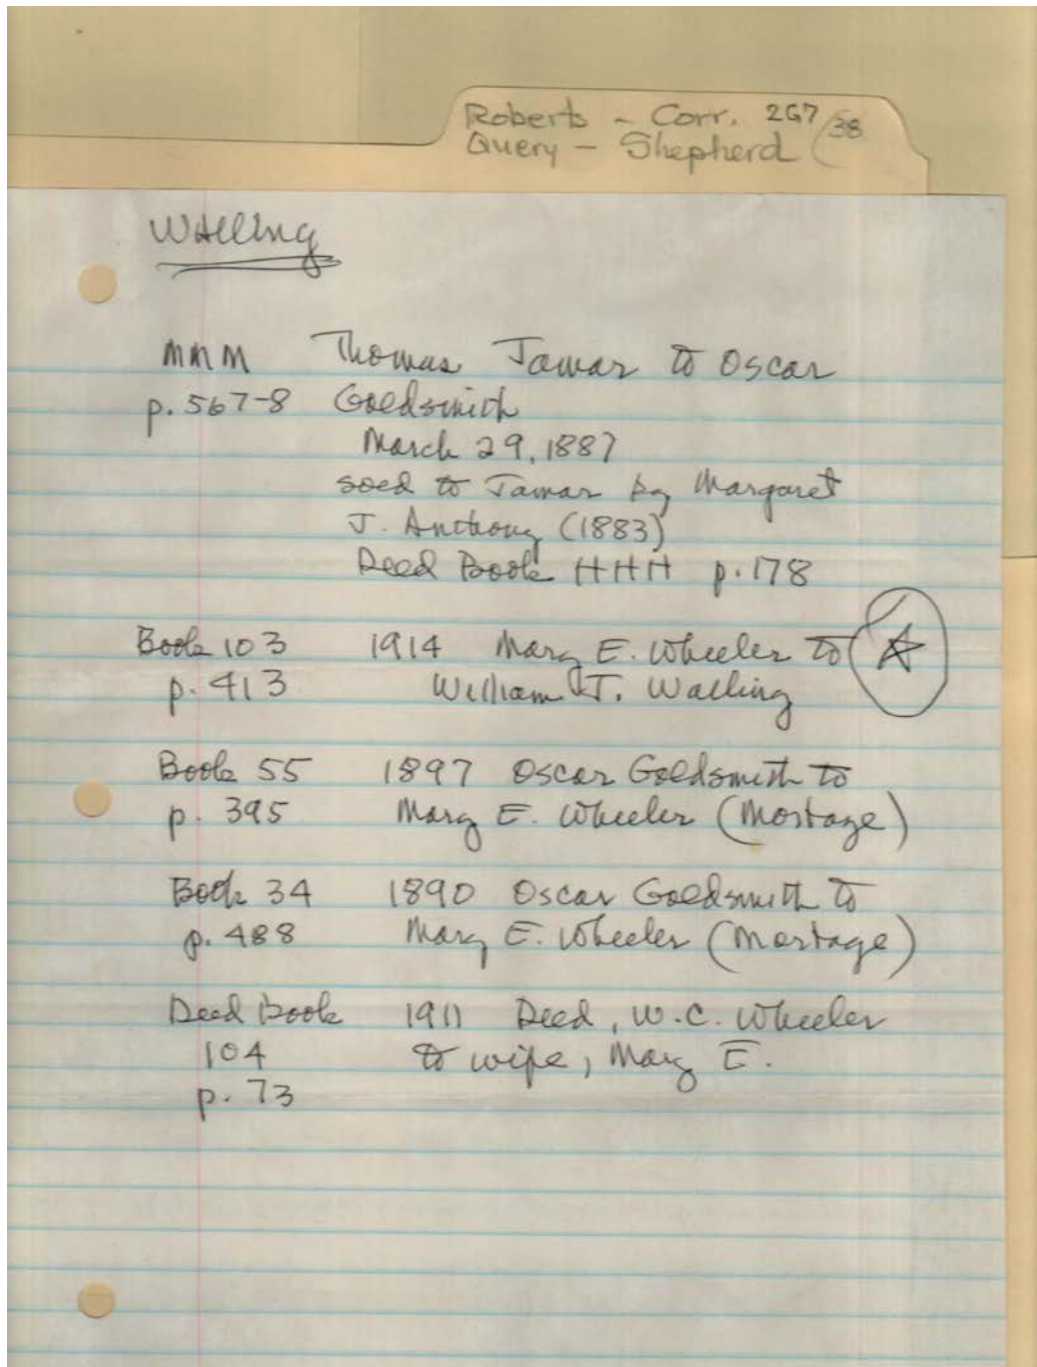 Roberts - Corr. 2G7/38
Query - Shepherd
Walling
MMM Thomas Tamar to Oscar
p. 567-8 Goldsmith
March 29, 1887
sold to Tamar by Margaret
J. Anthony (1883)
Deed Book HHH p. 178
Book 103 1914 Mary E. Wheeler to
p. 413 William T. Walling
Book 55 1897 Oscar Goldsmith to
p. 395 Mary E. Wheeler (Mortage)
Book 34 1890 Oscar Goldsmith to
p. 488 Mary E. Wheeler (Mortage)
Deed Book 1911 Deed, W.C. Wheeler
104 to wife, Mary E.
p. 73